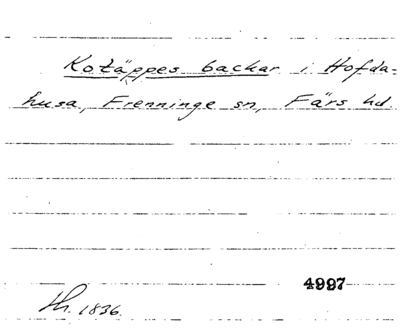 Kotäppes backar i Hofda-
husa, Frenninge sn, Färs hd
4997
1836.